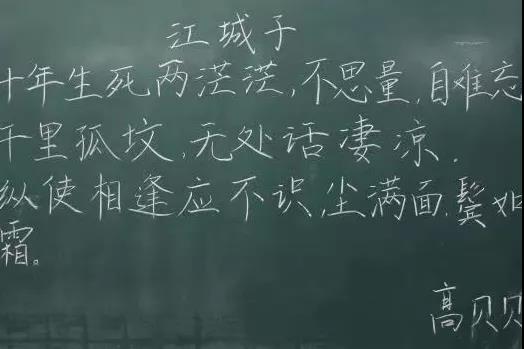 江城子
十年生死两茫茫,不思量,自难忘
千里孤坟,无处话凄凉.
纵使相逢应不识,尘满面,鬓如
霜。
高贝贝